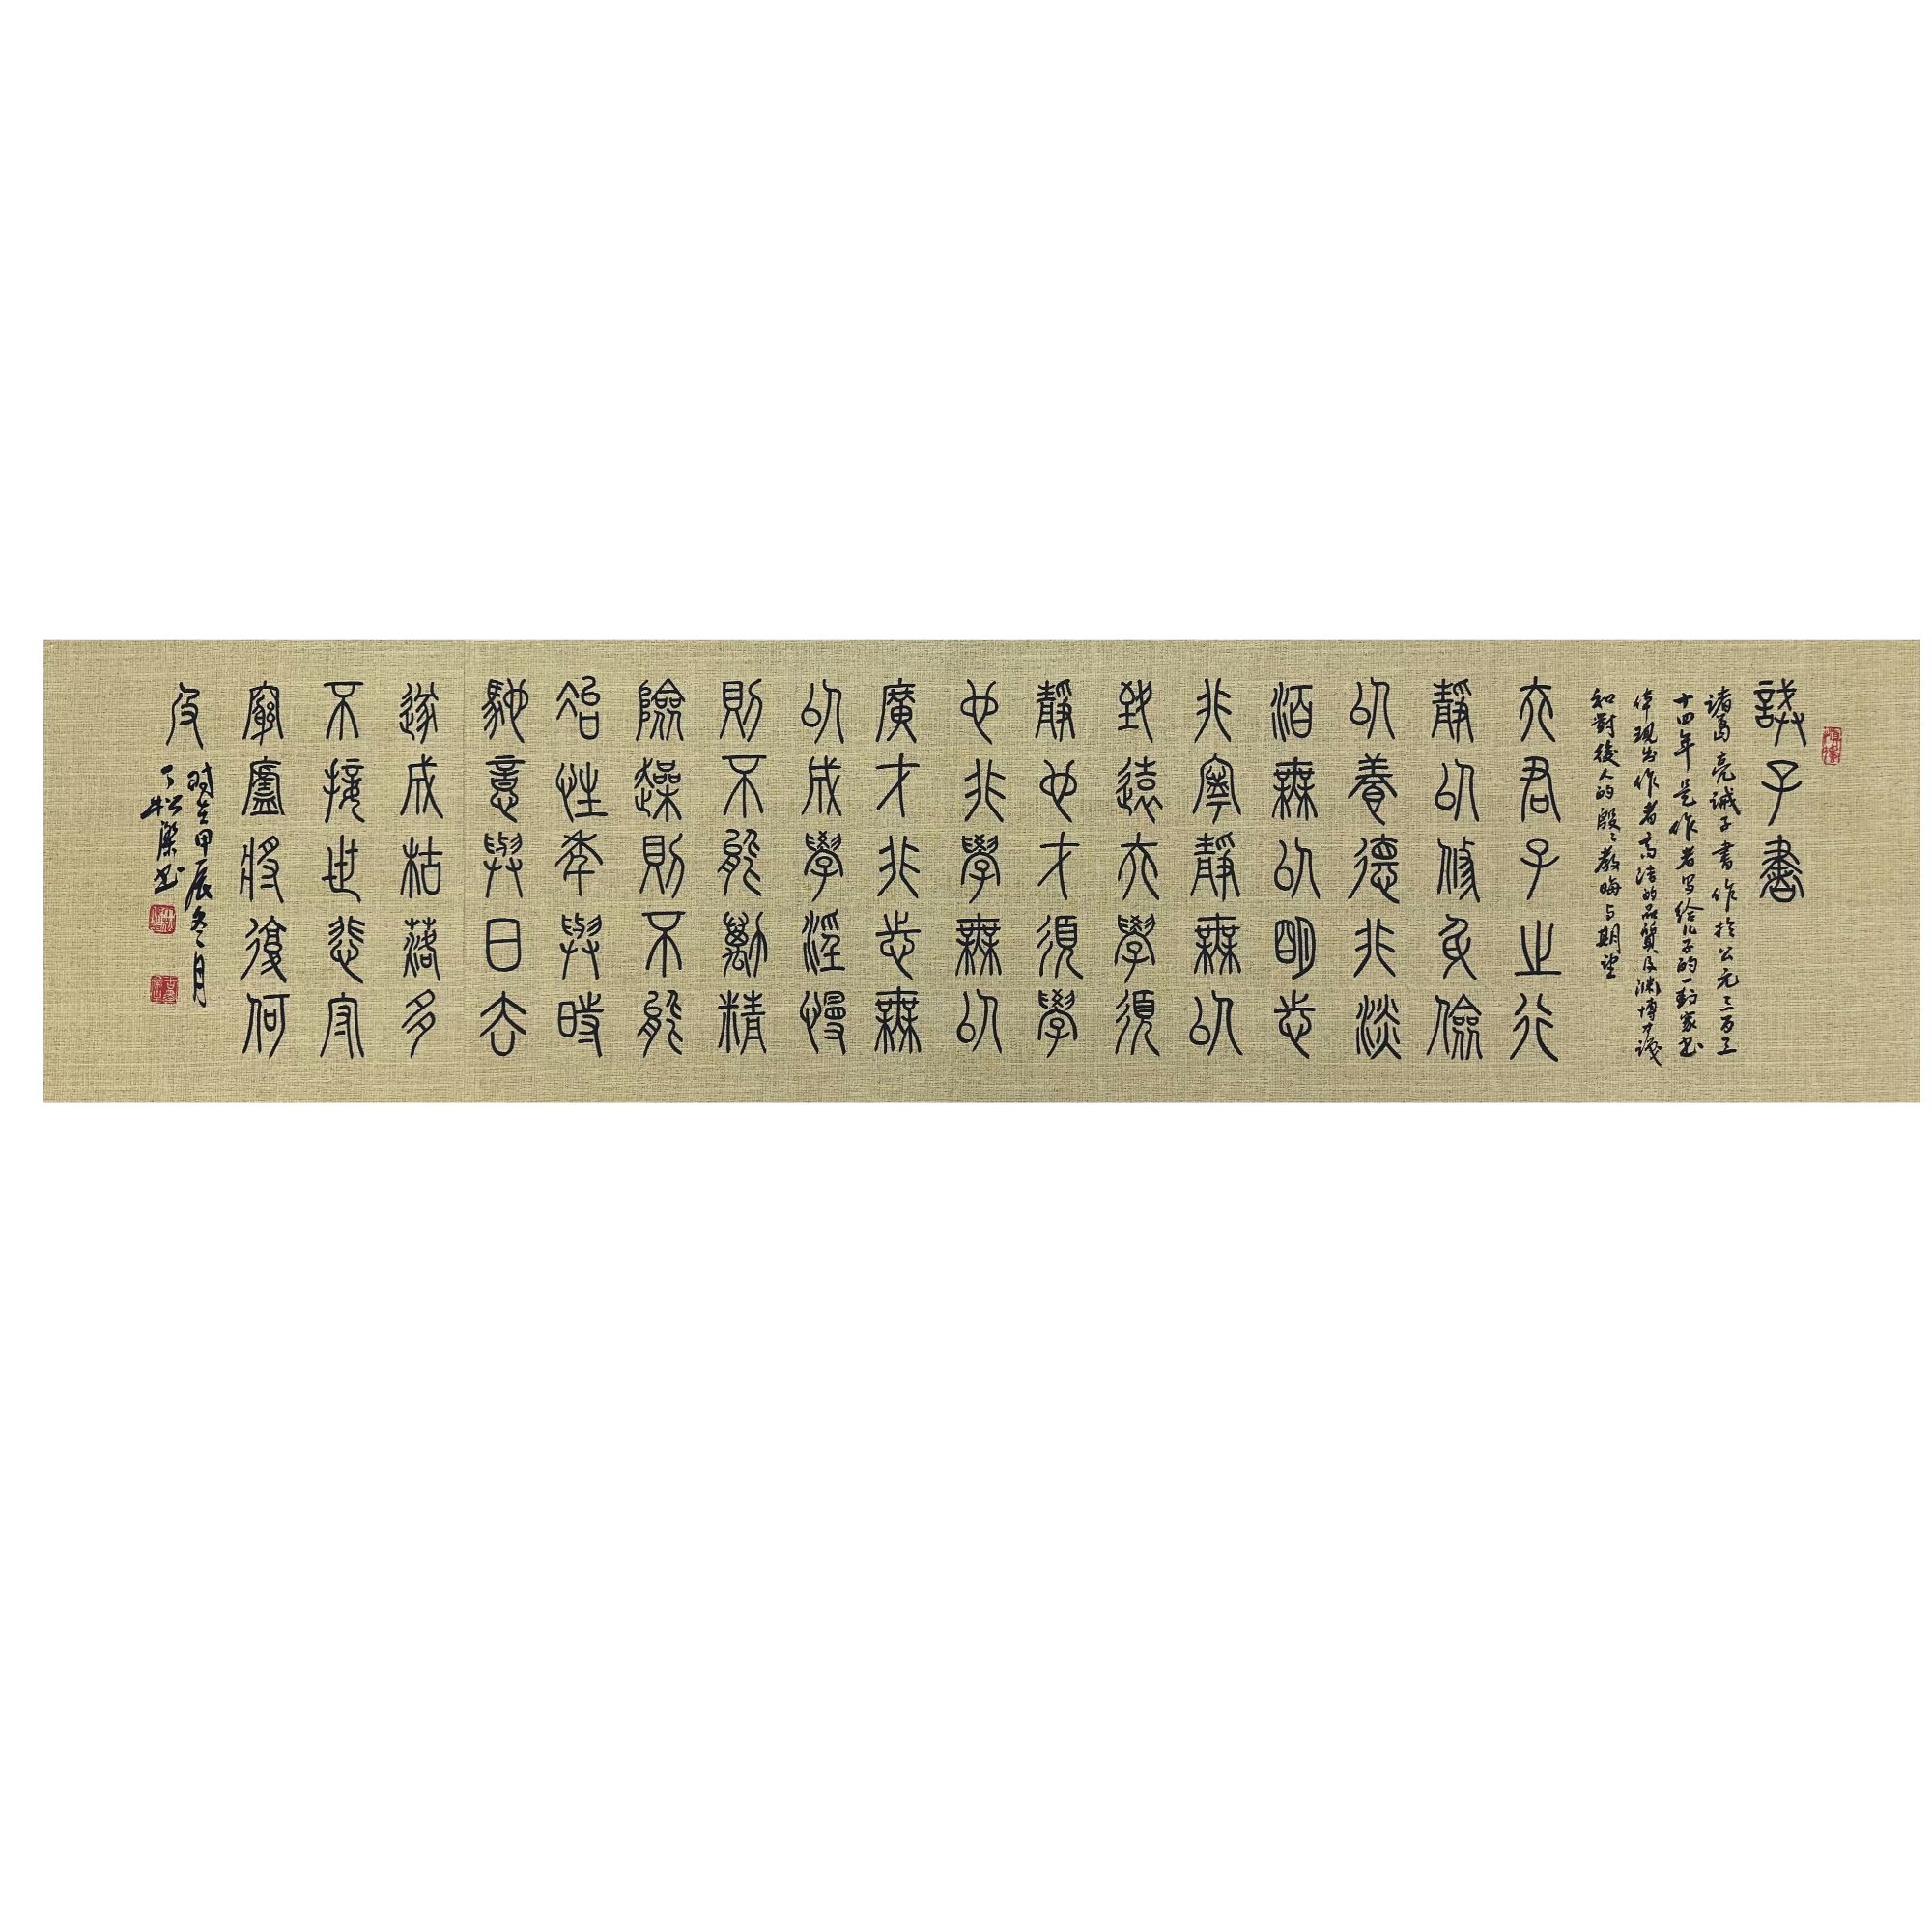 誡子書
諸葛亮誡子書作於公元二百三
十四年是作者写给儿子的一封家书
体现出作者高洁的品質及渊博才識
和對後人的殷〻教晦与期望
夫君子之行
靜以修身儉
以養德非淡
泊無以明志
非寧靜無以
致遠夫學須
靜也才須學
也非學無以
廣才非志無
以成學淫慢
則不能勵精
險躁則不能
治性年與時
馳意與日去
遂成枯落多
不接世悲守
窮廬將復何
及
时在甲辰冬月
丁松书